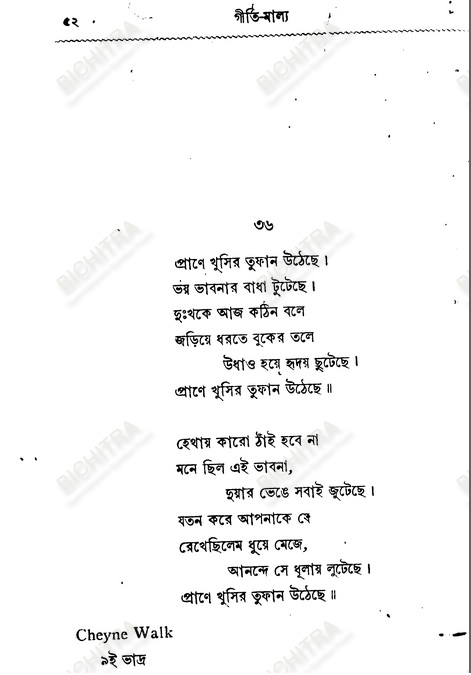 ৫২ গীতি-মাল্য
৩৬
প্রাণে খুসির তুফান উঠেছে ।
ভয় ভাবনার বাধা টুটেছে ।
দুঃখকে আজ কঠিন বলে
জড়িয়ে ধরতে বুকের তলে
উধাও হয়ে হৃদয় ছুটেছে ।
প্রাণে খুসির তুফান উঠেছে ॥
হেথায় কারো ঠাঁই হবে না
মনে ছিল এই ভাবনা,
দুয়ার ভেঙে সবাই জুটেছে ।
যতন করে আপনাকে যে
রেখেছিলেম ধুয়ে মেজে,
আনন্দে সে ধূলায় লুটেছে ।
প্রাণে খুসির তুফান উঠেছে ॥
Cheyne Walk
৯ই ভাদ্র
BICHITRA
BICHITRA
BICHITRA
BICHITRA
BICHITRA
BICHITRA
BICHITRA
BICHITRA